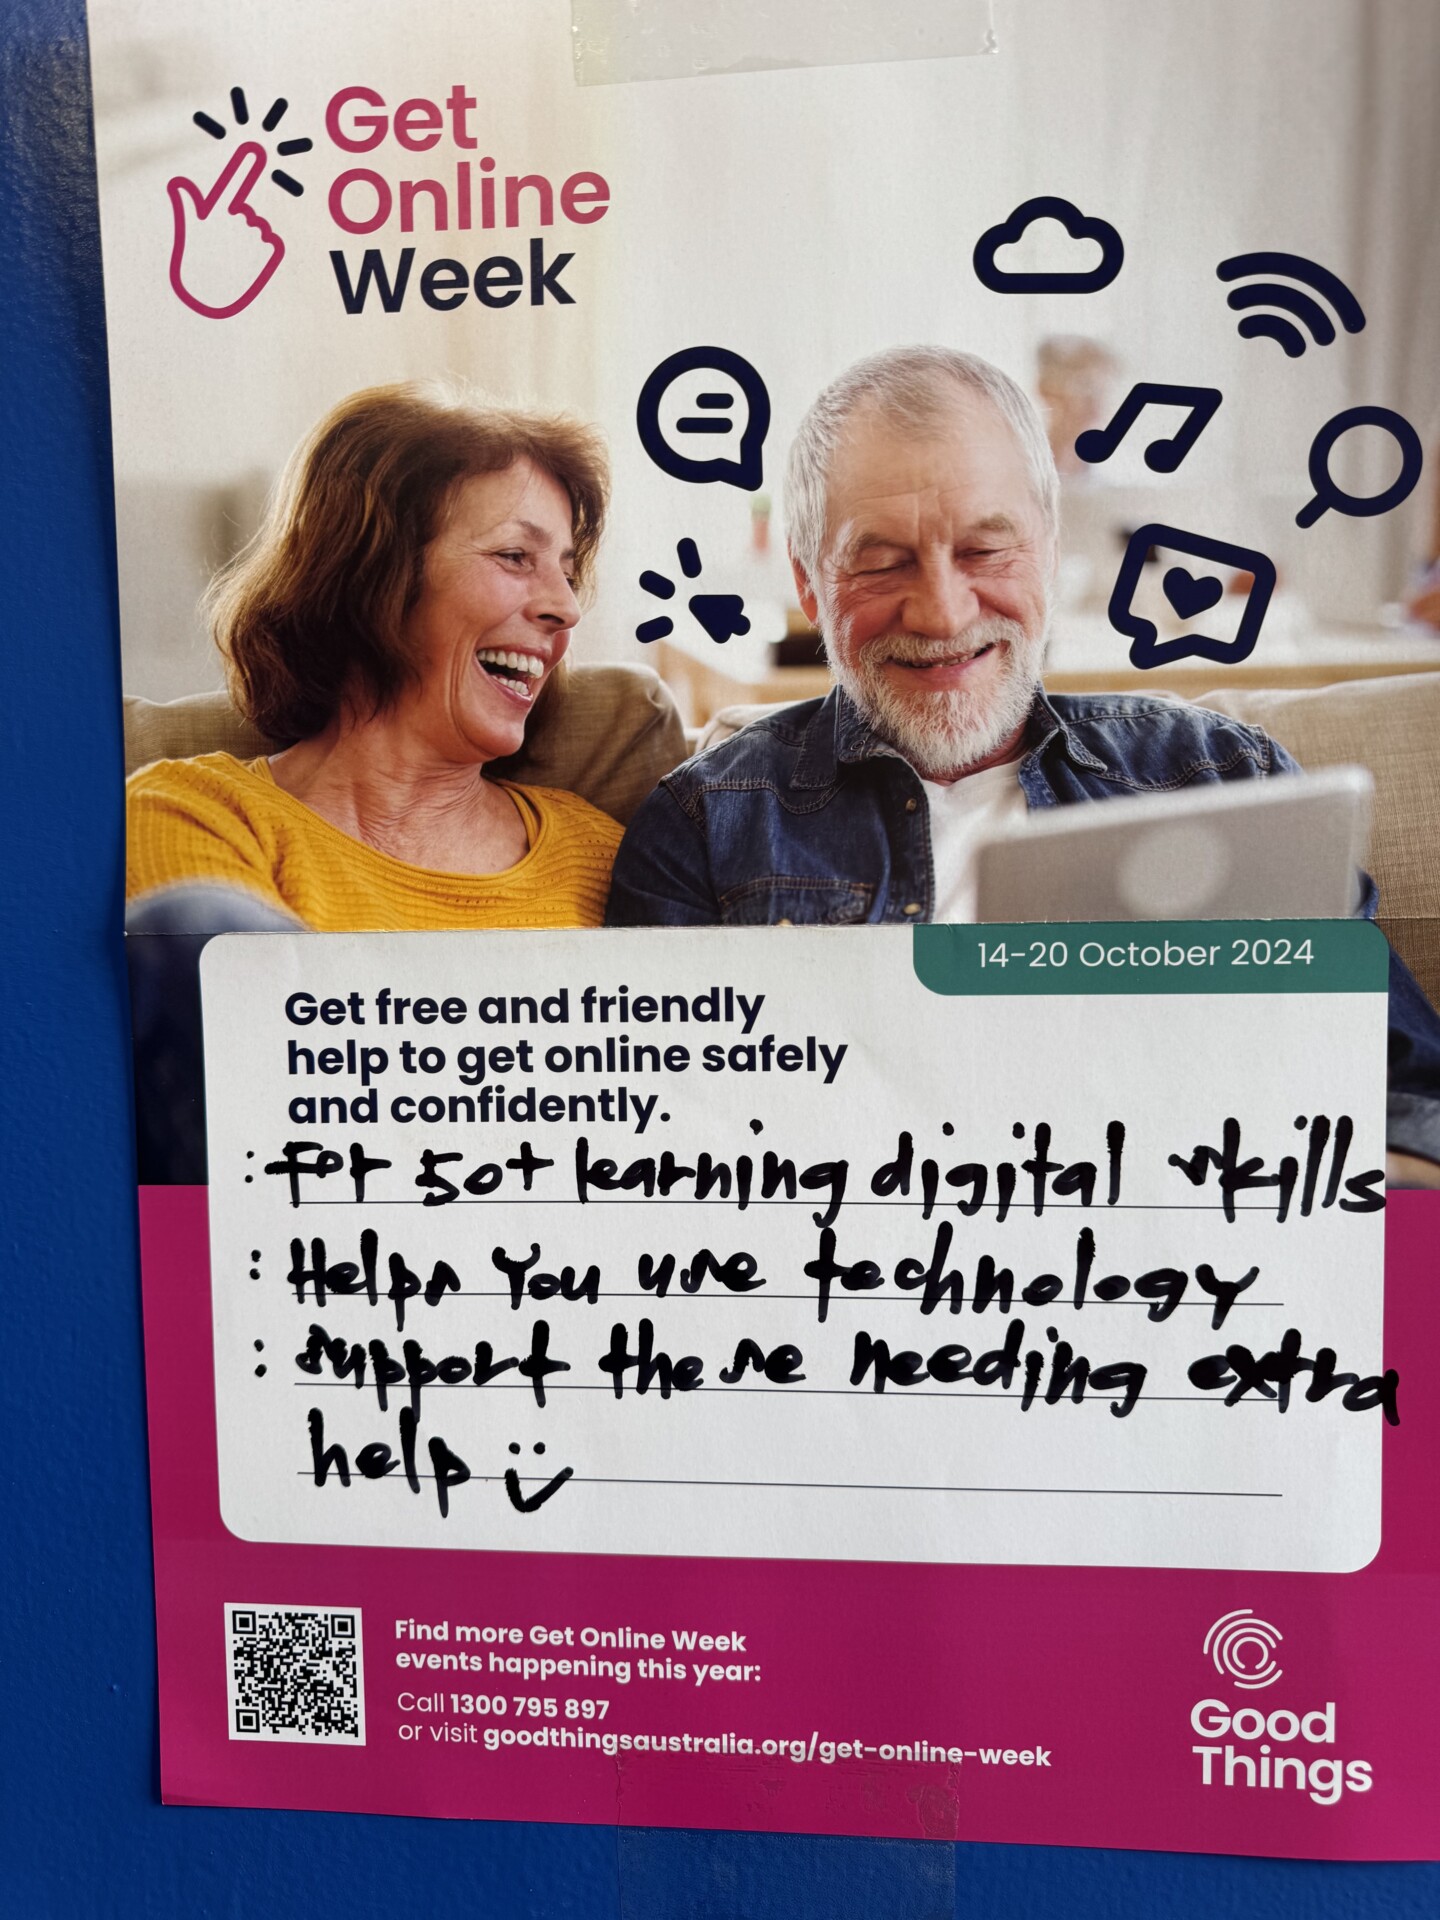 Get
Online
Week
14-20 October 2024
Get free and friendly
help to get online safely
and confidently.
: For 50+ learning digital skills
: Helps You use technology
: support these needing extra
help
Find more Get Online Week
events happening this year:
Call 1300 795 897
or visit goodthingsaustralia.org/get-online-week
Good
Things